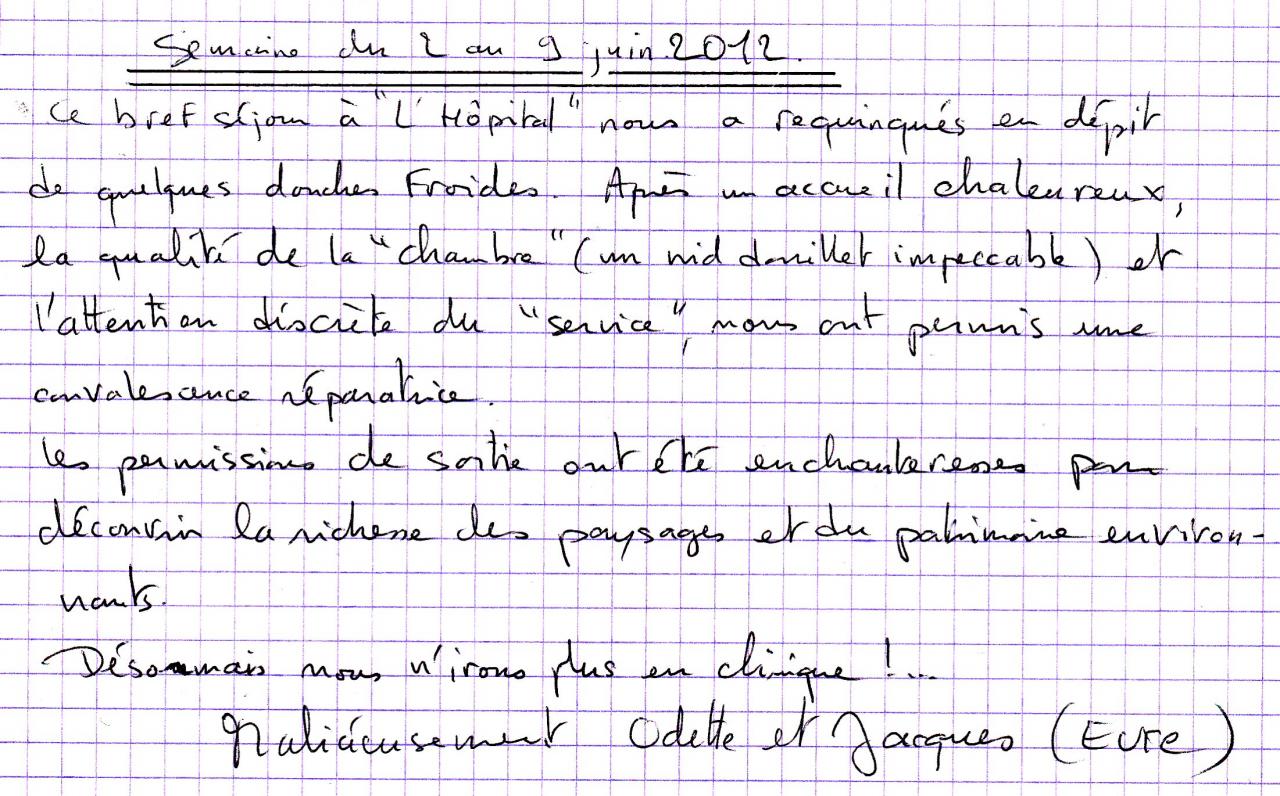 Semaine du 2 au 9 juin 2012.
Ce bref séjour à "L'Hôpital" nous a requinqués en dépit
de quelques douches froides. Après un accueil chaleureux,
la qualité de la "chambre" (un nid douillet impeccable) et
l'attention discrète du "service", nous ont permis une
convalescence réparatrice.
Les permissions de sortie ont été enchanteresses pour
découvrir la richesse des paysages et du patrimoine environ-
nants.
Désormais nous n'irons plus en clinique !...
Malicieusement Odette et Jacques (Eure)